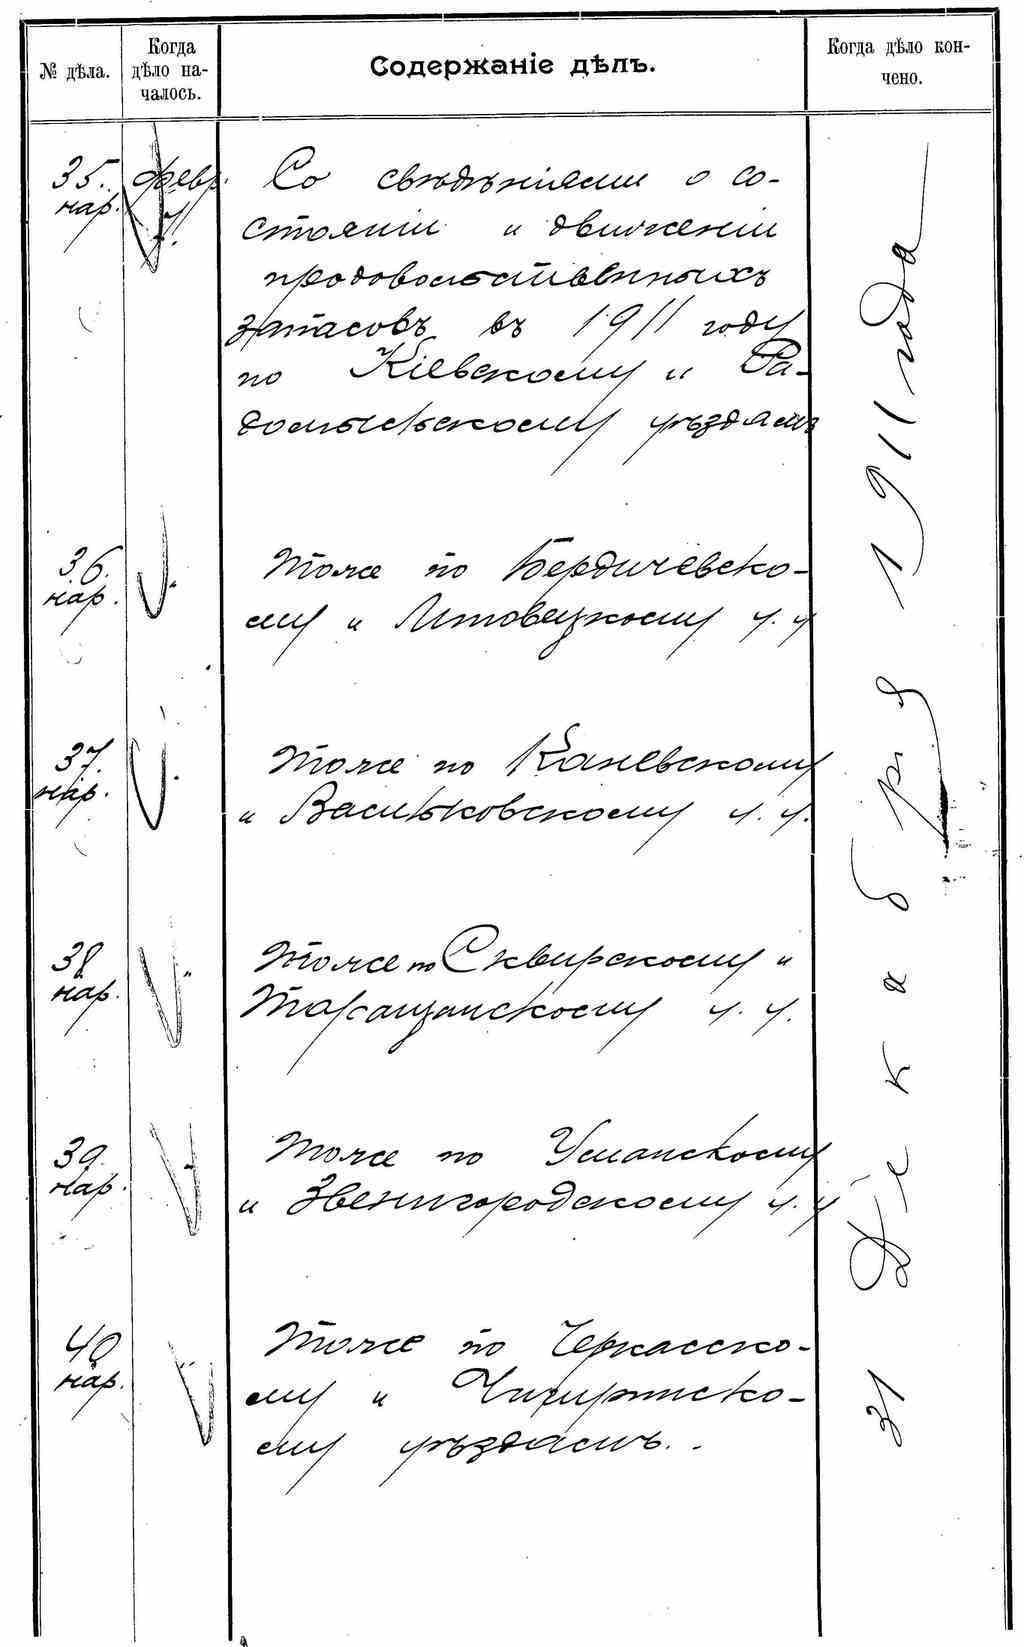 № дѣла.
Когда
дѣло на-
чалось.
Содержаніе дѣлъ.
Когда дѣло кон-
чено.
35.
нар.
февр.
Со свѣдѣніями о со-
стояніи и движеніи
продовольственныхъ
запасовъ въ 1911 году
по Кіевскому и Ра-
домысльскому уѣздамъ
36.
нар.
Тоже по Бердичевско-
му и Липовецкому у. у
37.
нар.
Тоже по Каневскому
и Васильковскому у. у.
38
нар.
Тоже по Сквирскому и
Таращанскому у. у.
39.
нар.
Тоже по Уманскому
и Звенигородскому у. у
40
нар.
Тоже по Черкасско-
му и Чигиринско-
му уѣздамъ.
31 Декабря 1911 года